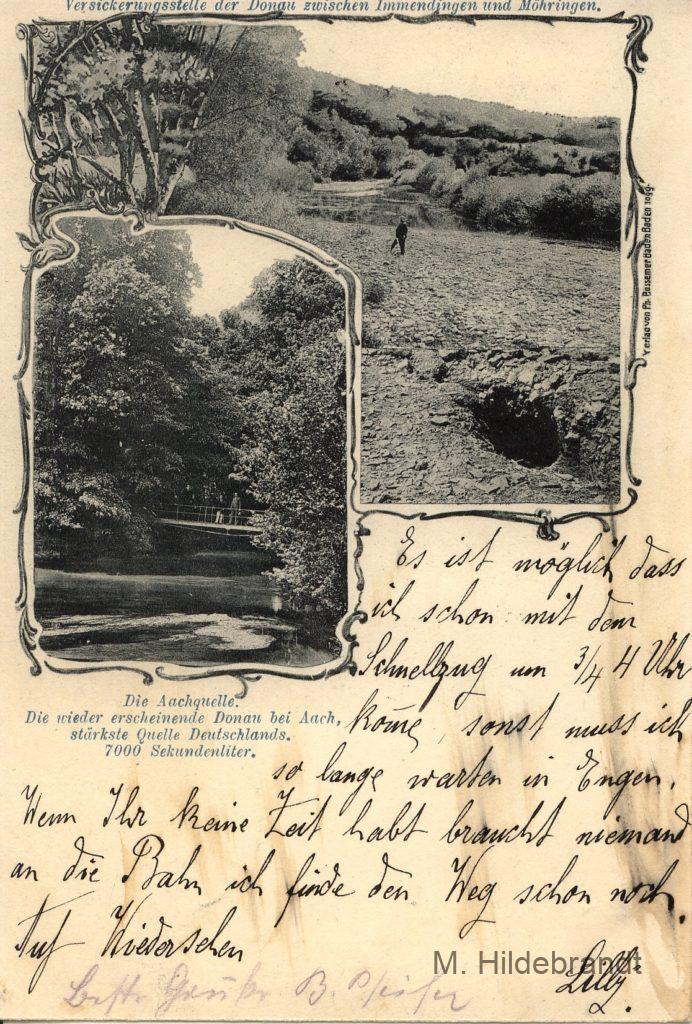 Versickerungsstelle der Donau zwischen Immendingen und Möhringen.
Verlag von Ph. Bussemer Baden Baden 1099.
Die Aachquelle.
Die wieder erscheinende Donau bei Aach,
stärkste Quelle Deutschlands.
7000 Sekundenliter.
Es ist möglich dass
ich schon mit dem
Schnellzug um 3/4 4 Uhr
kom̄e, sonst muss ich
so lange warten in Engen.
Wenn Ihr keine Zeit habt braucht niemand
an die Bahn ich finde den Weg schon noch.
Auf Wiedersehen
Lilly.
M. Hildebrandt
B.